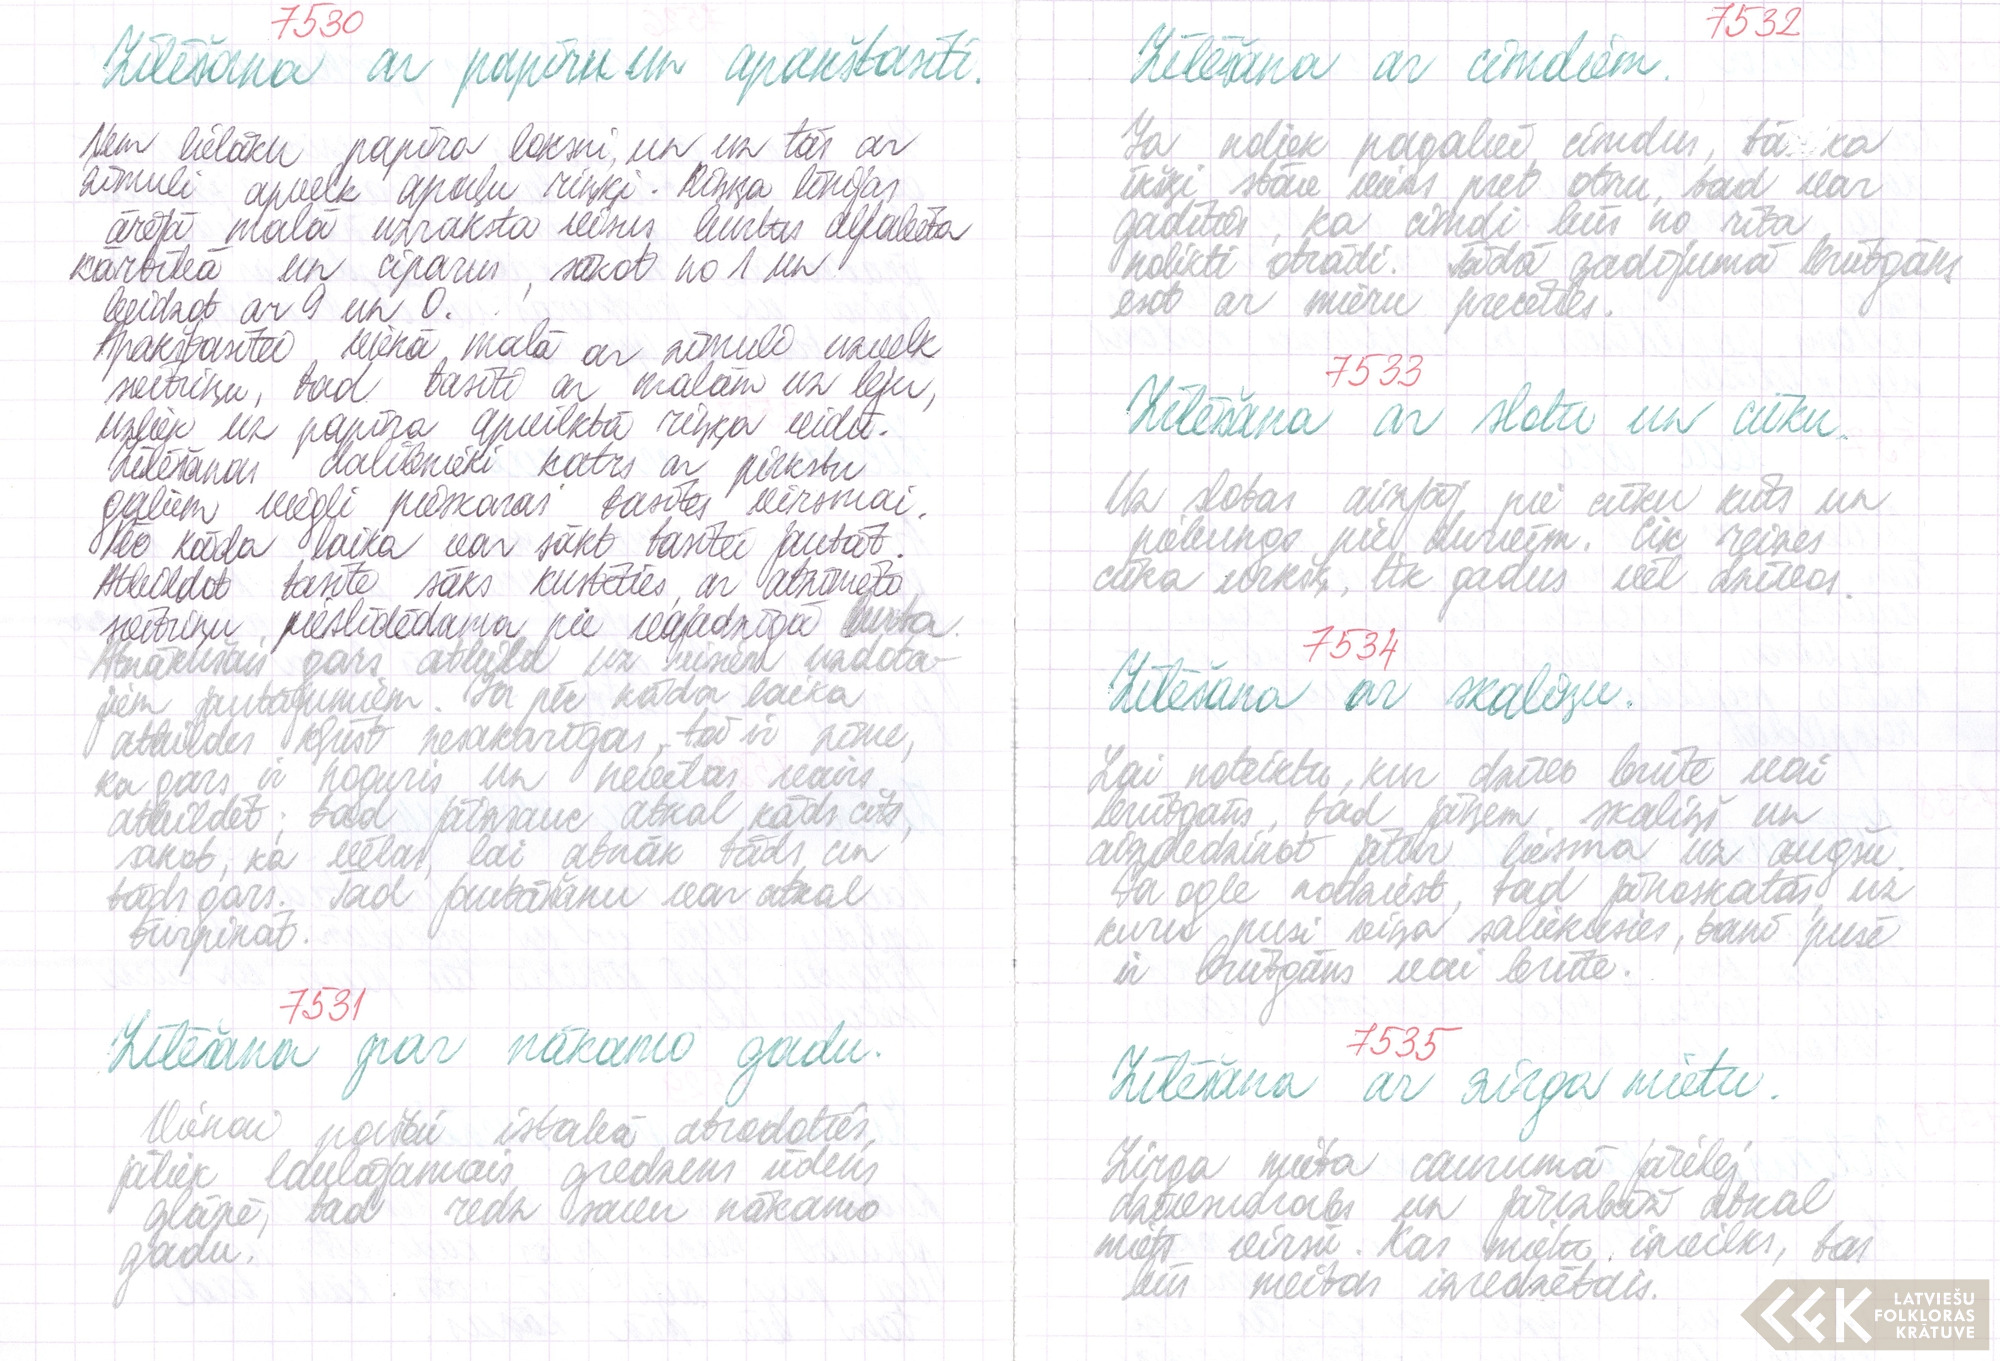 7530
Zīlēšana ar papīru un apakštasīti.
Ņem lielāku papīra loksni, un uz tās ar
zīmuli apvelk apaļu riņķi. Riņķa līnijas
ārējā malā uzraksta visus burtus alfabēta
kārtībā un ciparus, sākot no 1 un
beidzot ar 9 un 0.
Apakštasītei vienā malā ar zīmuli uzvelk
svītriņu, tad tasīti ar malām uz leju,
uzliek uz papīra apvilktā riņķa vidū.
Zīlēšanas dalībnieki katrs ar pirkstu
galiem viegli pieskaras tasītes virsmai.
Pēc kāda laika var sākt tasītei jautāt.
Atbildot tasīte sāks kustēties, ar atzīmēto
svītriņu, pieslīdēdama pie vajadzīgā burta.
Atnākušais gars atbild uz visiem uzdota-
jiem jautājumiem. Ja pēc kāda laika
atbildes kļūst nesakarīgas, tā ir zīme,
ka gars ir noguris un nevēlas vairs
atbildēt; tad jāizsauc atkal kāds cits,
sakot, ka vēlas, lai atnāk tāds un
tāds gars. Tad jautāšanu var atkal
turpināt.
7531
Zīlēšana par nākamo gadu.
Vienai pašai istabā atrodoties,
jāliek laulājamais gredzens ūdens
glāzē, tad redz savu nākamo
gadu.
7532
Zīlēšana ar cimdiem.
Ja noliek pagalvē cimdus, tā ka
īkšķi stāv viens pret otru, tad var
gadīties, ka cimdi būs no rīta
nolikti otrādi. Tādā gadījumā brūtgāns
esot ar mieru precēties.
7533
Zīlēšana ar slotu un cūku.
Uz slotas aizjāj pie cūku kūts un
pieklungo pie durvīm. Cik reizes
cūka urkšķ, tik gadus vēl dzīvos.
7534
Zīlēšana ar skaliņu.
Lai noteiktu, kur dzīvo brūte vai
brūtgāns, tad jāņem skaliņš un
aizdedzinot jātur liesma uz augšu.
Ja ogle nodziest, tad jānoskatās, uz
kuru pusi viņa saliekusies, tanī pusē
ir brūtgāns vai brūte.
7535
Zīlēšana ar zirga mietu.
Zirga mieta caurumā jāielej
dzīvsudrabs un jāuzbāž atkal
miets virsū. Kas mietu izvilks, tas
būs meitas izredzētais.
LATVIEŠU
FOLKLORAS
KRĀTUVE